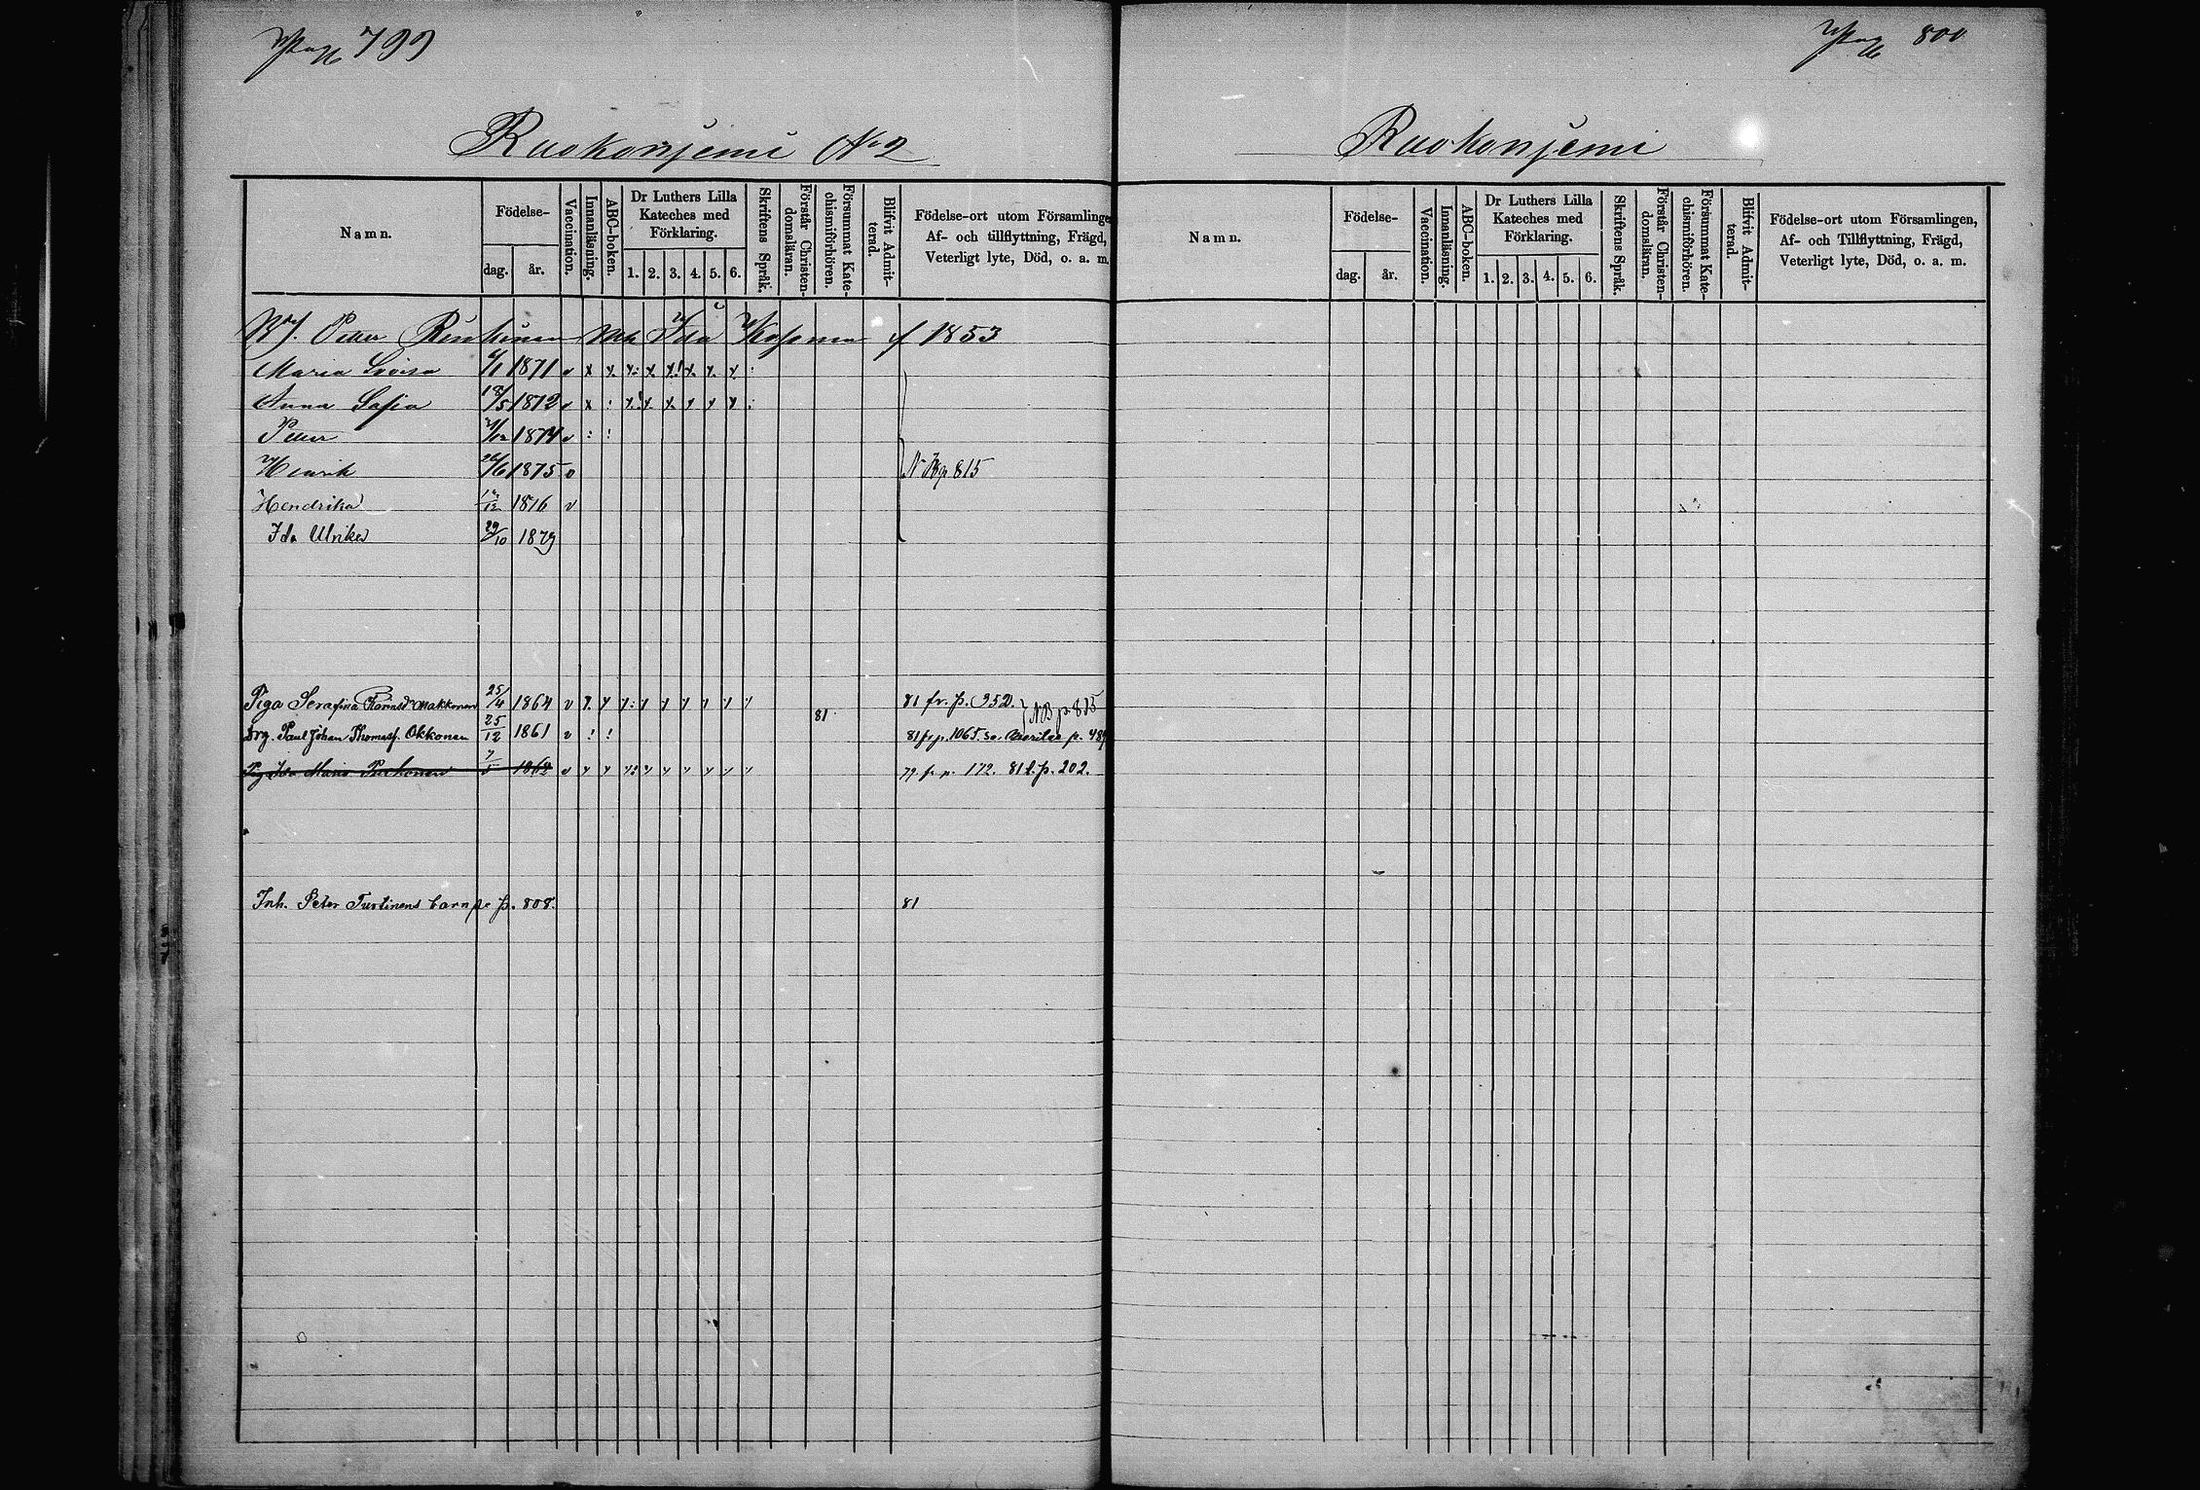 Pag 799
Ruokonjemi No 2
Namn.
Födelse-
dag.
år.
Vaccination.
Innanläsning.
ABC-boken.
Dr Luthers Lilla
Kateches med
Förklaring.
1. 2. 3. 4. 5. 6.
Skriftens Språk.
Förstår Christen-
domsläran.
Försummat Kate-
chismiförhören.
Blifvit Admit-
terad.
Födelse-ort utom Församlinge
Af- och tillflyttning, Frägd,
Veterligt lyte, Död, o. a. m.
Petter Ida f 1853
Maria Lovisa 1871 v x x
Anna Sofia 18/5 1872 v x
Petter 1874 v : :
Henrik 1875 v N B p 815
Hendrika 1876 v
Ida Ulrika 29/10 1879
Piga Serafina Makkonen 25/4 1864 v 81 fr. p. 352. NB p. 815
Drg. Paul Johan Thomasf. Okkonen 25/12 1861 v ! ! 81 81 fr p. 1065. p. 489
Pig Ida Maria 7/5 1862 v 79 fr p. 172. 81 t. p. 202.
Inh. Peter Turtinens barn se p. 808. 81
Pag 800
Ruokonjemi
Namn.
Födelse-
dag.
år.
Vaccination.
Innanläsning.
ABC-boken.
Dr Luthers Lilla
Kateches med
Förklaring.
1. 2. 3. 4. 5. 6.
Skriftens Språk.
Förstår Christen-
domsläran.
Försummat Kate-
chismiförhören.
Blifvit Admit-
terad.
Födelse-ort utom Församlingen,
Af- och Tillflyttning, Frägd,
Veterligt lyte, Död, o. a. m.